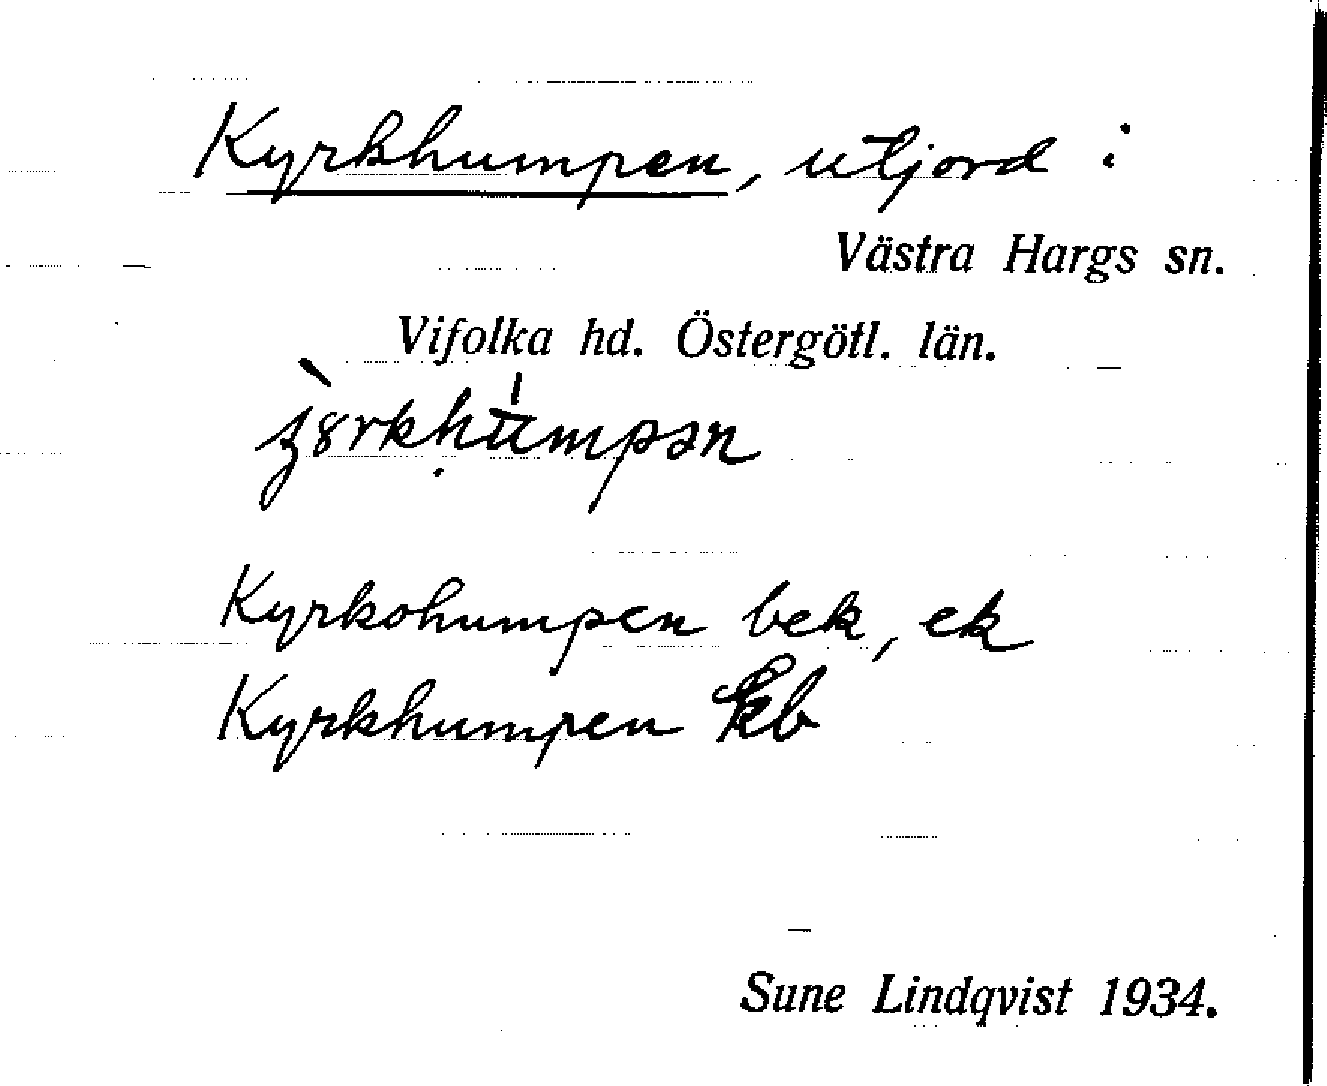 Kyrkhumpen, utjord i
Västra Hargs sn.
Vifolka hd. Östergötl. län.
Kyrkohumpen bek, ek
Kyrkhumpen kb
Sune Lindqvist 1934.